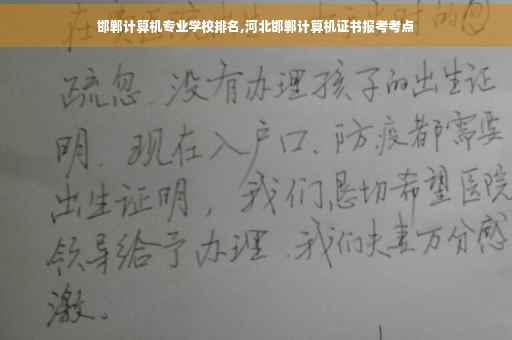 邯郸计算机专业学校排名,河北邯郸计算机证书报考考点
疏忽、没有办理孩子的出生证
明、现在入户口、防疫都需要
出生证明，我们恳切希望医院
领导给予办理、我们夫妻万分感
激。